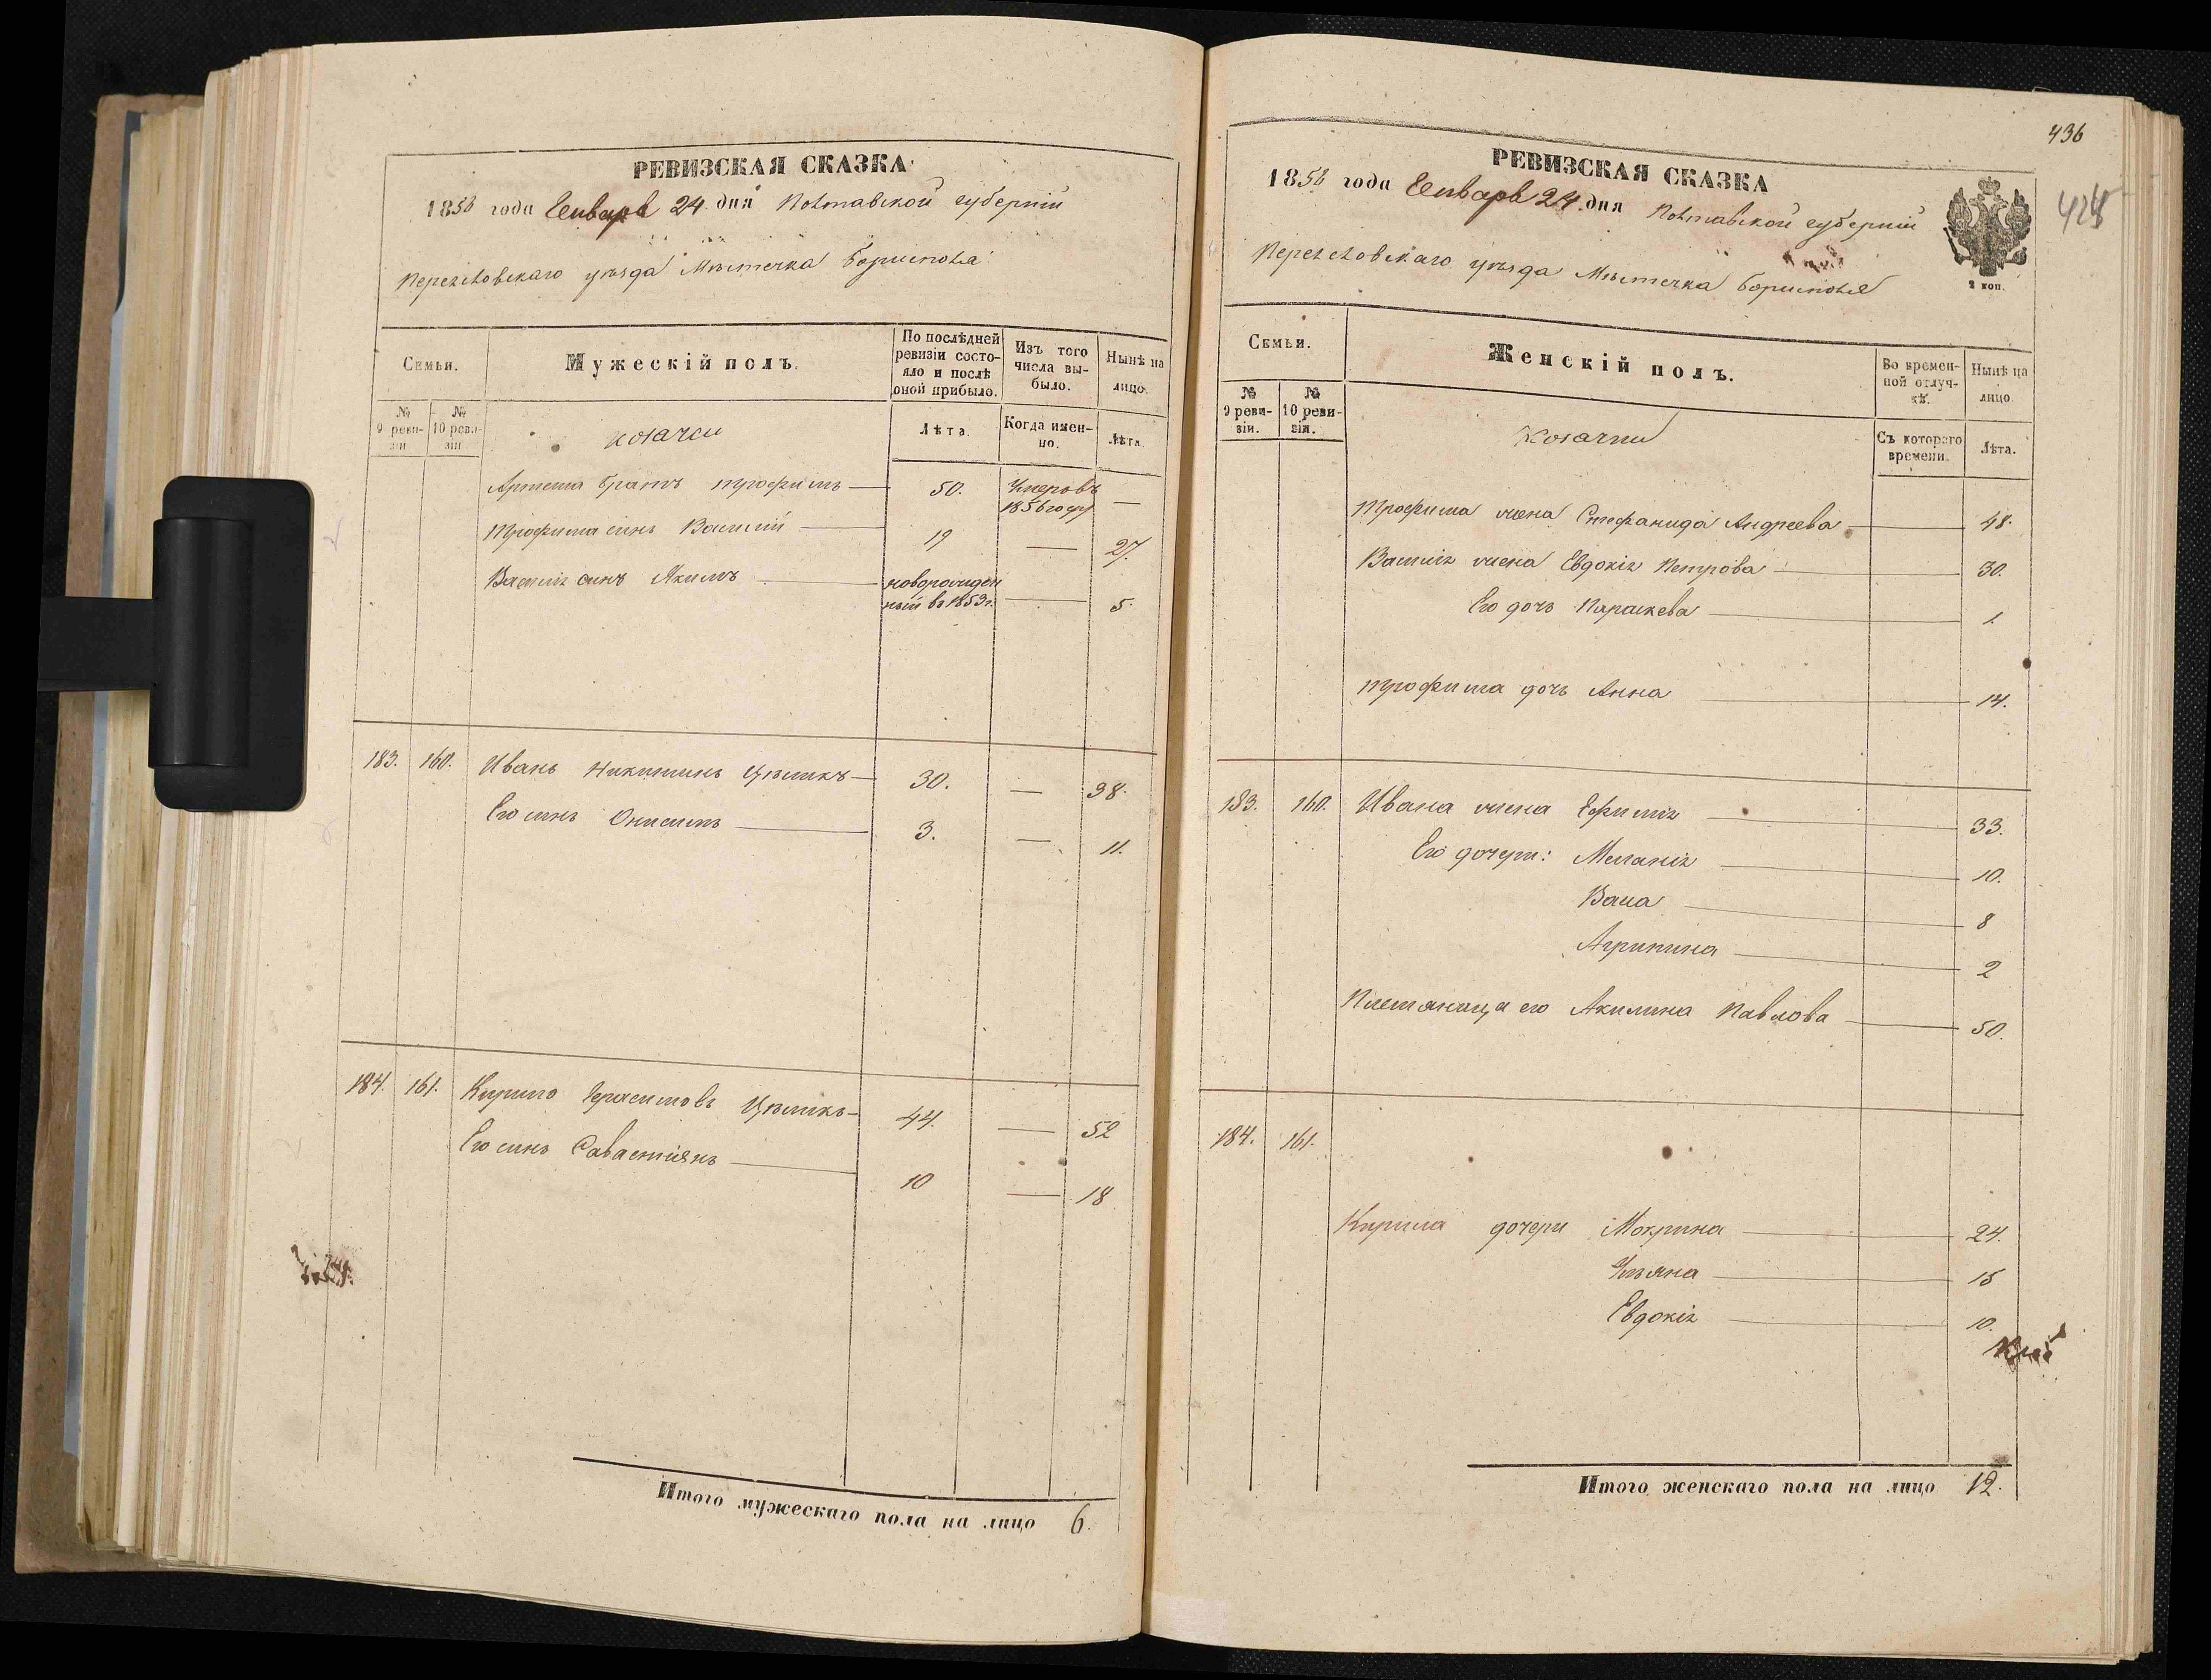 РЕВИЗСКАЯ СКАЗКА
1858 года Генваря 24 дня Полтавской губерніи
Переяславскаго уѣзда Мѣстечка Борисполя
Семьи.
Мужескій полъ.
По послѣдней ревизіи состояло и послѣ оной прибыло.
Изъ того числа выбыло.
Нынѣ на лицо.
№ 9 ревизіи
№ 10 ревизіи
козаки
Лѣта.
Когда именно.
Лѣта.
Артема братъ Трофимъ — 50. Умеръ въ 1856 году —
Трофима синъ Василій — 19 — 27.
Василія синъ Якимъ — новорожденный въ 1853 г. — 5.
183. 160. Иванъ Никитинъ Цѣликъ — 30. — 38.
Его синъ Онисимъ — 3. — 11.
184. 161. Кирило Герасимовъ Цѣликъ — 44. — 52
Его синъ Савастіянъ — 10 — 18
Итого мужескаго пола на лицо 6.
436
428
РЕВИЗСКАЯ СКАЗКА
1858 года Генваря 24 дня Полтавской губерніи
Переяславскаго уѣзда Мѣстечка Борисполя
2 коп.
Семьи.
Женскій полъ.
Во временной отлучкѣ.
Нынѣ на лицо.
№ 9 ревизіи.
№ 10 ревизіи.
Козачки
Съ котораго времени.
Лѣта.
Трофима жена Стефанида Андреева — 48.
Василія жена Евдокія Петрова — 30.
Его дочь Параскева — 1.
Трофима дочь Анна — 14.
183. 160. Ивана жена Ефимія — 33.
Его дочери: Меланія — 10.
Васа — 8
Агрипина — 2
Племяница его Акилина Павлова — 50.
184. 161.
Кирила дочери Мокрина — 24.
Ульяна — 15
Евдокія — 10.
Итого женскаго пола на лицо 12.